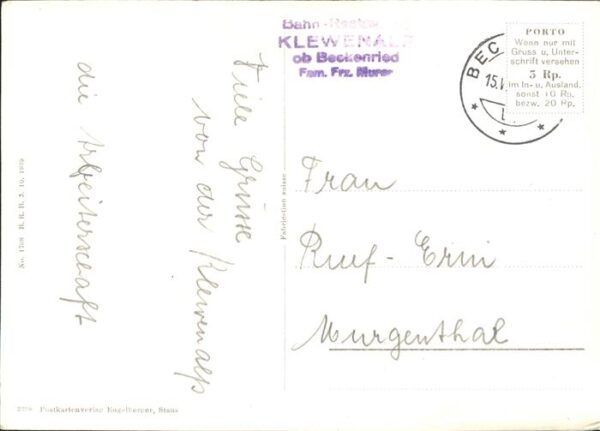 Bahn-Restaurant
KLEWENALP
ob Beckenried
Fam. Frz. Murer
PORTO
Wenn nur mit
Gruss u. Unter-
schrift versehen
5 Rp.
im In- u. Ausland.
sonst 10 Rp.
bezw. 20 Rp.
BEC
15.V
Viele Grüsse
von der Klewenalp
die Arbeiterschaft
Frau
Ruef-Erni
Murgenthal
Fabrication suisse
No. 1708 B. R. B. 3. 10. 1939
Postkartenverlag Engelberger, Stans